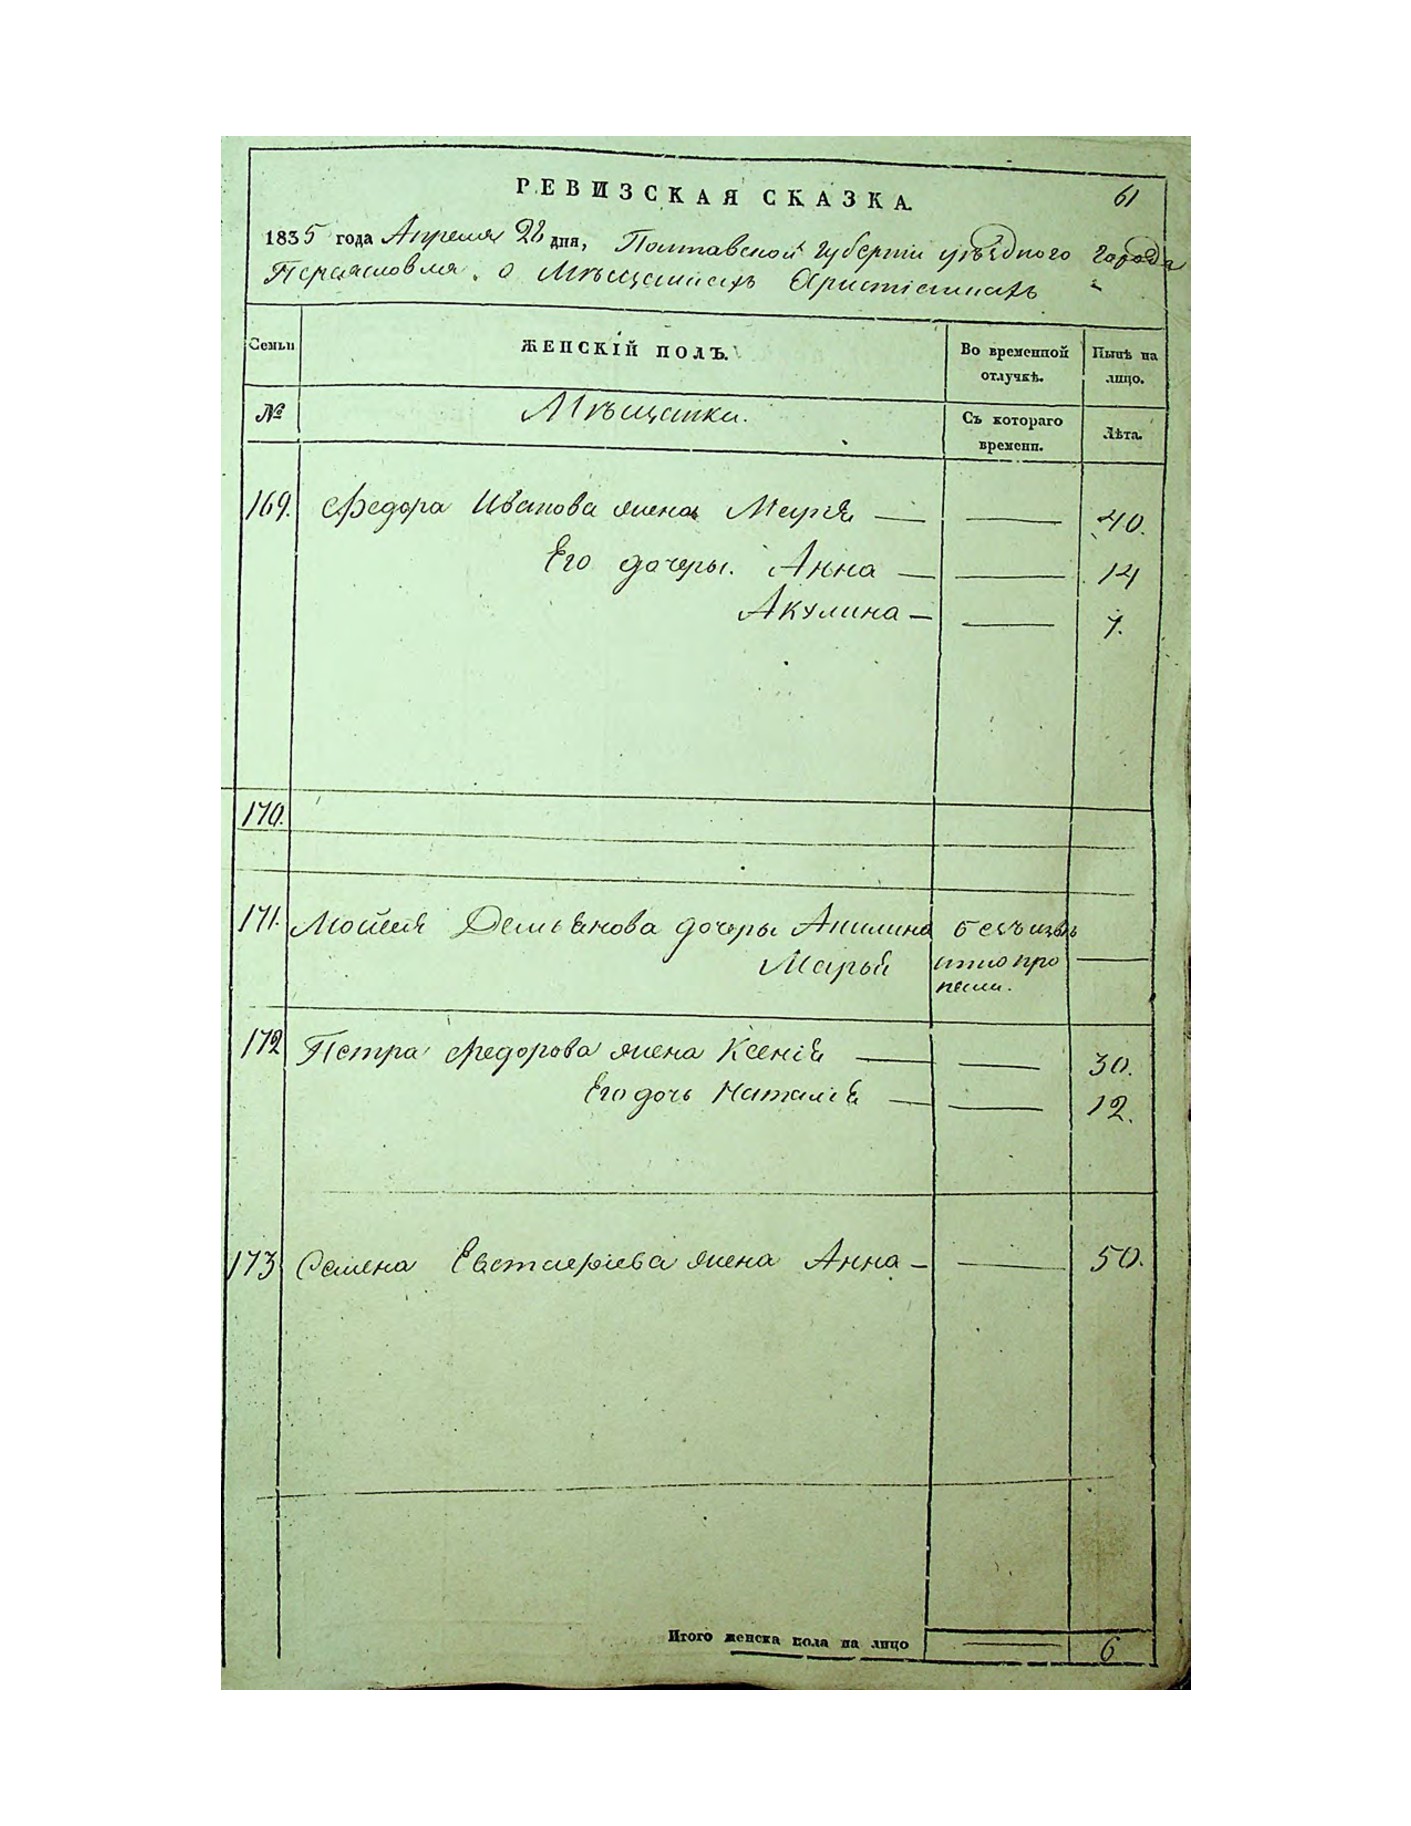 РЕВИЗСКАЯ СКАЗКА.
61
1835 года Апреля 28 дня, Полтавской губернїи уѣзднаго города
Переясловля, о Мѣщанахъ Христіянахъ
Семьи
ЖЕНСКІЙ ПОЛЪ.
Во временной отлучкѣ.
Нынѣ на лицо.
№
Мѣщанки.
Съ котораго времени.
Лѣта.
169. Федора Иванова жена Марїя — — 40.
Его дочеры. Анна — — 14
Акулина — — 7.
170.
171. Мойсея Демьянова дочеры Акилина безъизвѣ
Марья стно про —
пали.
172 Петра Федорова жена Ксенїя — — 30.
Его дочь Наталїя — — 12.
173 Семена Евстаерїева жена Анна — — 50.
Итого женска пола на лицо — 6